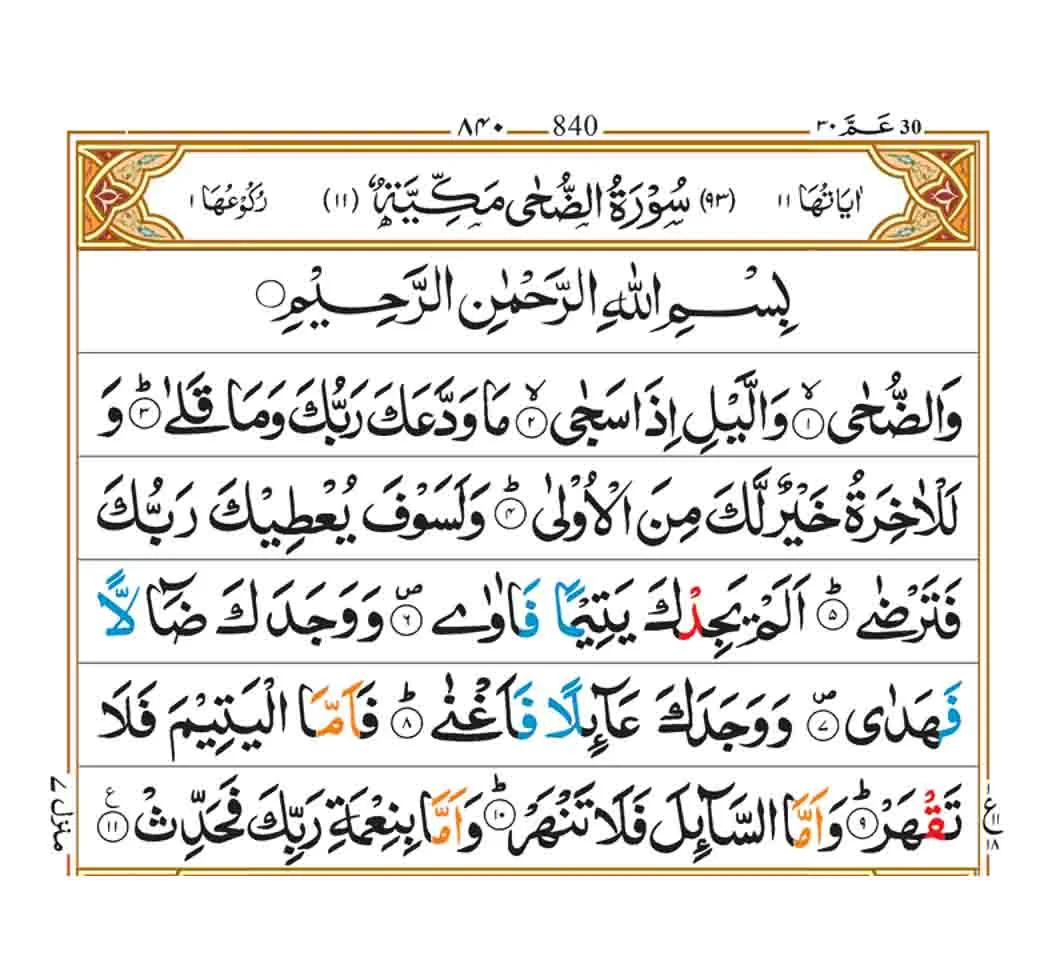 ٨٤٠ 840 عَـمَّ ٣٠ 30
اٰيَاتُهَا ١١ (٩٣) سُوْرَةُ الضُّحٰى مَكِّيَّةٌ (١١) رُكُوْعُهَا ١
بِسْمِ اللّٰهِ الرَّحْمٰنِ الرَّحِيْمِ
وَالضُّحٰى ۙ﴿١﴾ وَالَّيْلِ اِذَا سَجٰى ۙ﴿٢﴾ مَا وَدَّعَكَ رَبُّكَ وَمَا قَلٰى ؕ﴿٣﴾ وَ
لَلْاٰخِرَةُ خَيْرٌ لَّكَ مِنَ الْاُوْلٰى ؕ﴿٤﴾ وَلَسَوْفَ يُعْطِيْكَ رَبُّكَ
فَتَرْضٰے ؕ﴿٥﴾ اَلَمْ يَجِدْكَ يَتِيْمًا فَاٰوٰے ۪﴿٦﴾ وَوَجَدَكَ ضَآلًّا
فَهَدٰى ۪﴿٧﴾ وَوَجَدَكَ عَآئِلًا فَاَغْنٰے ؕ﴿٨﴾ فَاَمَّا الْيَتِيْمَ فَلَا
تَقْهَرْ ؕ﴿٩﴾ وَاَمَّا السَّآئِلَ فَلَا تَنْهَرْ ؕ﴿١٠﴾ وَاَمَّا بِنِعْمَةِ رَبِّكَ فَحَدِّثْ ﴿١١﴾ ع
ع ١١ ١٨
منزل ٧